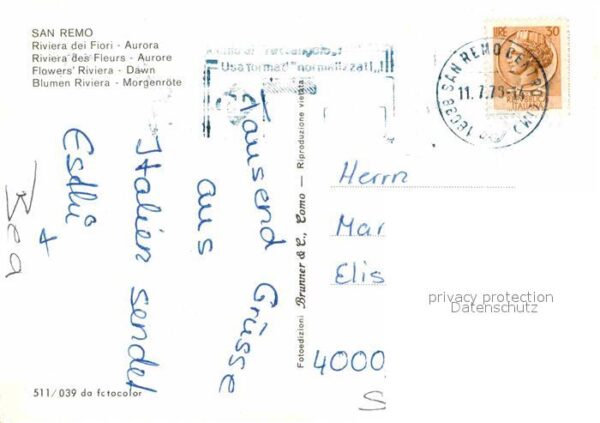 SAN REMO
Riviera dei Fiori - Aurora
Riviera des Fleurs - Aurore
Flowers' Riviera - Dawn
Blumen Riviera - Morgenröte
Usa formati "normalizzati"
LIRE 30
18038 SAN REMO CENTRO (IM)
11.7.76-14
ITALIANE
Tausend Grüsse
aus
Italien sendet
Esthi
+
Bea
Fotoedizioni Brunner & C., Como — Riproduzione vietata
Herrn
Mar
Elis
privacy protection
Datenschutz
4000
S
511/039 da fotocolor